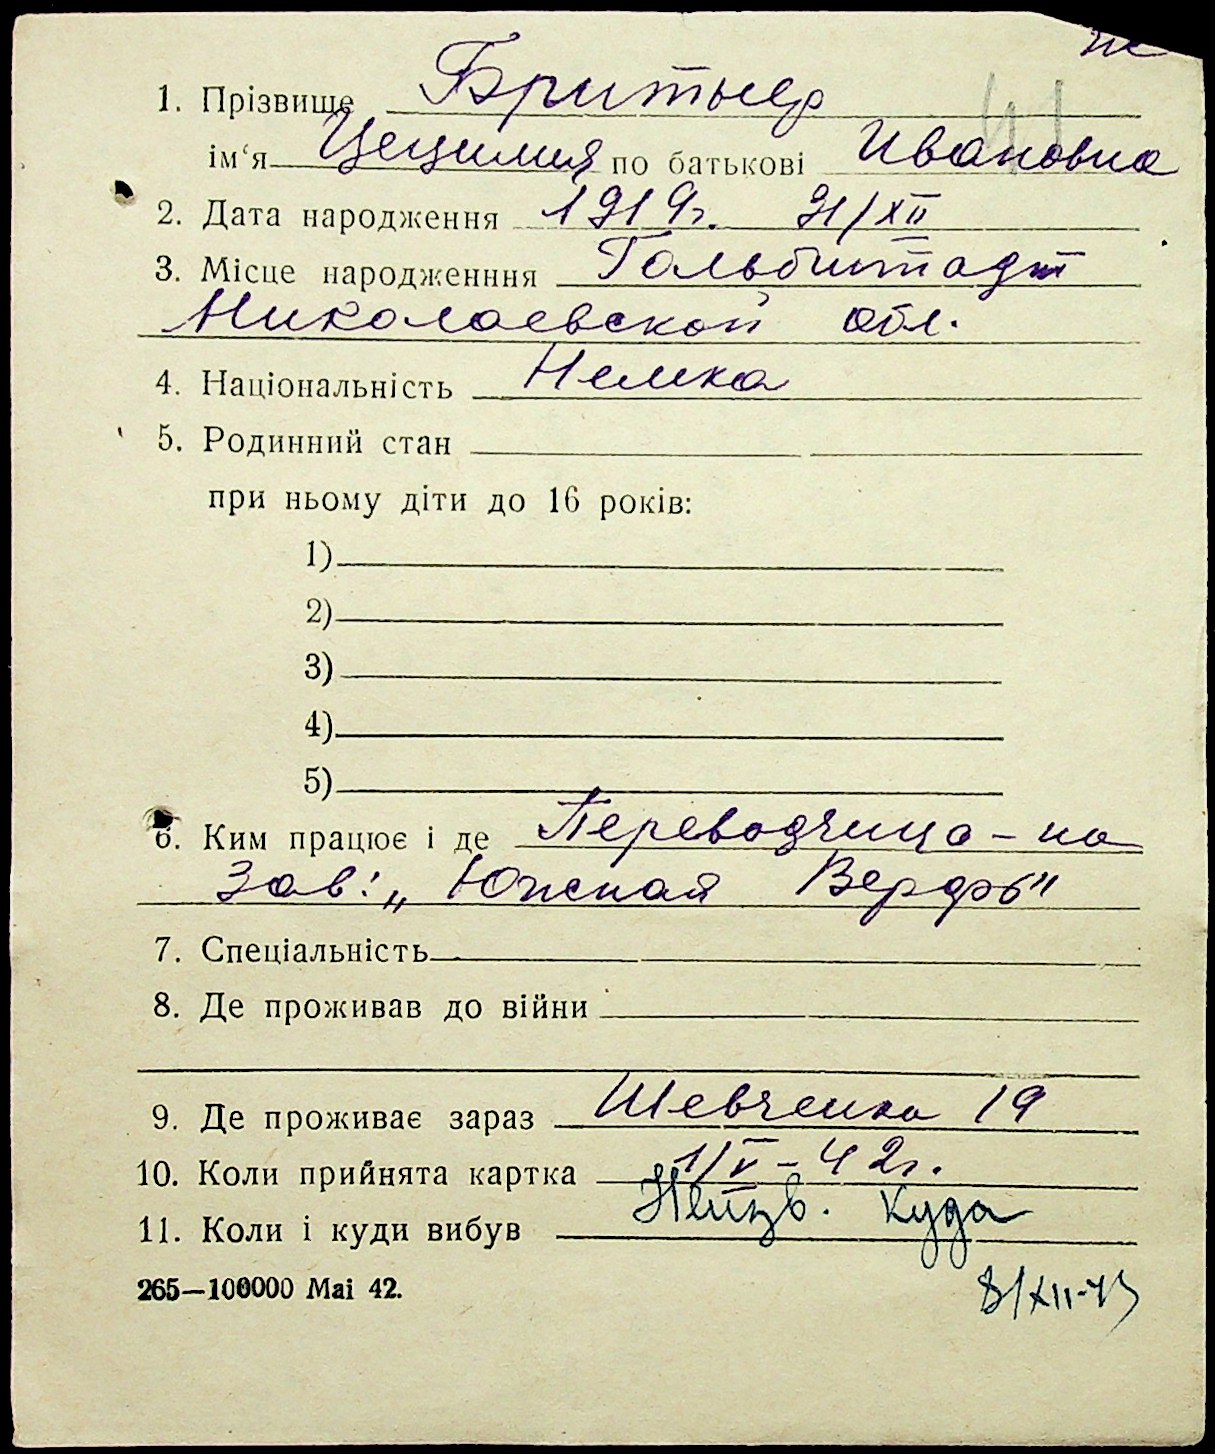 1. Прізвище Бритнер
ім‘я Цецилия по батькові Ивановна
2. Дата народження 1919г. 31/XII
3. Місце народженння Гальбштадт
Николаевской обл.
4. Національність Немка
5. Родинний стан
при ньому діти до 16 років:
1)
2)
3)
4)
5)
6. Ким працює і де Переводчица – на
Зав: „Южная Верфь"
7. Спеціальність
8. Де проживав до війни
9. Де проживає зараз Шевченко 19
10. Коли прийнята картка 1/V – 42г.
11. Коли і куди вибув Неизв. куда
265—100000 Mai 42. 8/XII-43